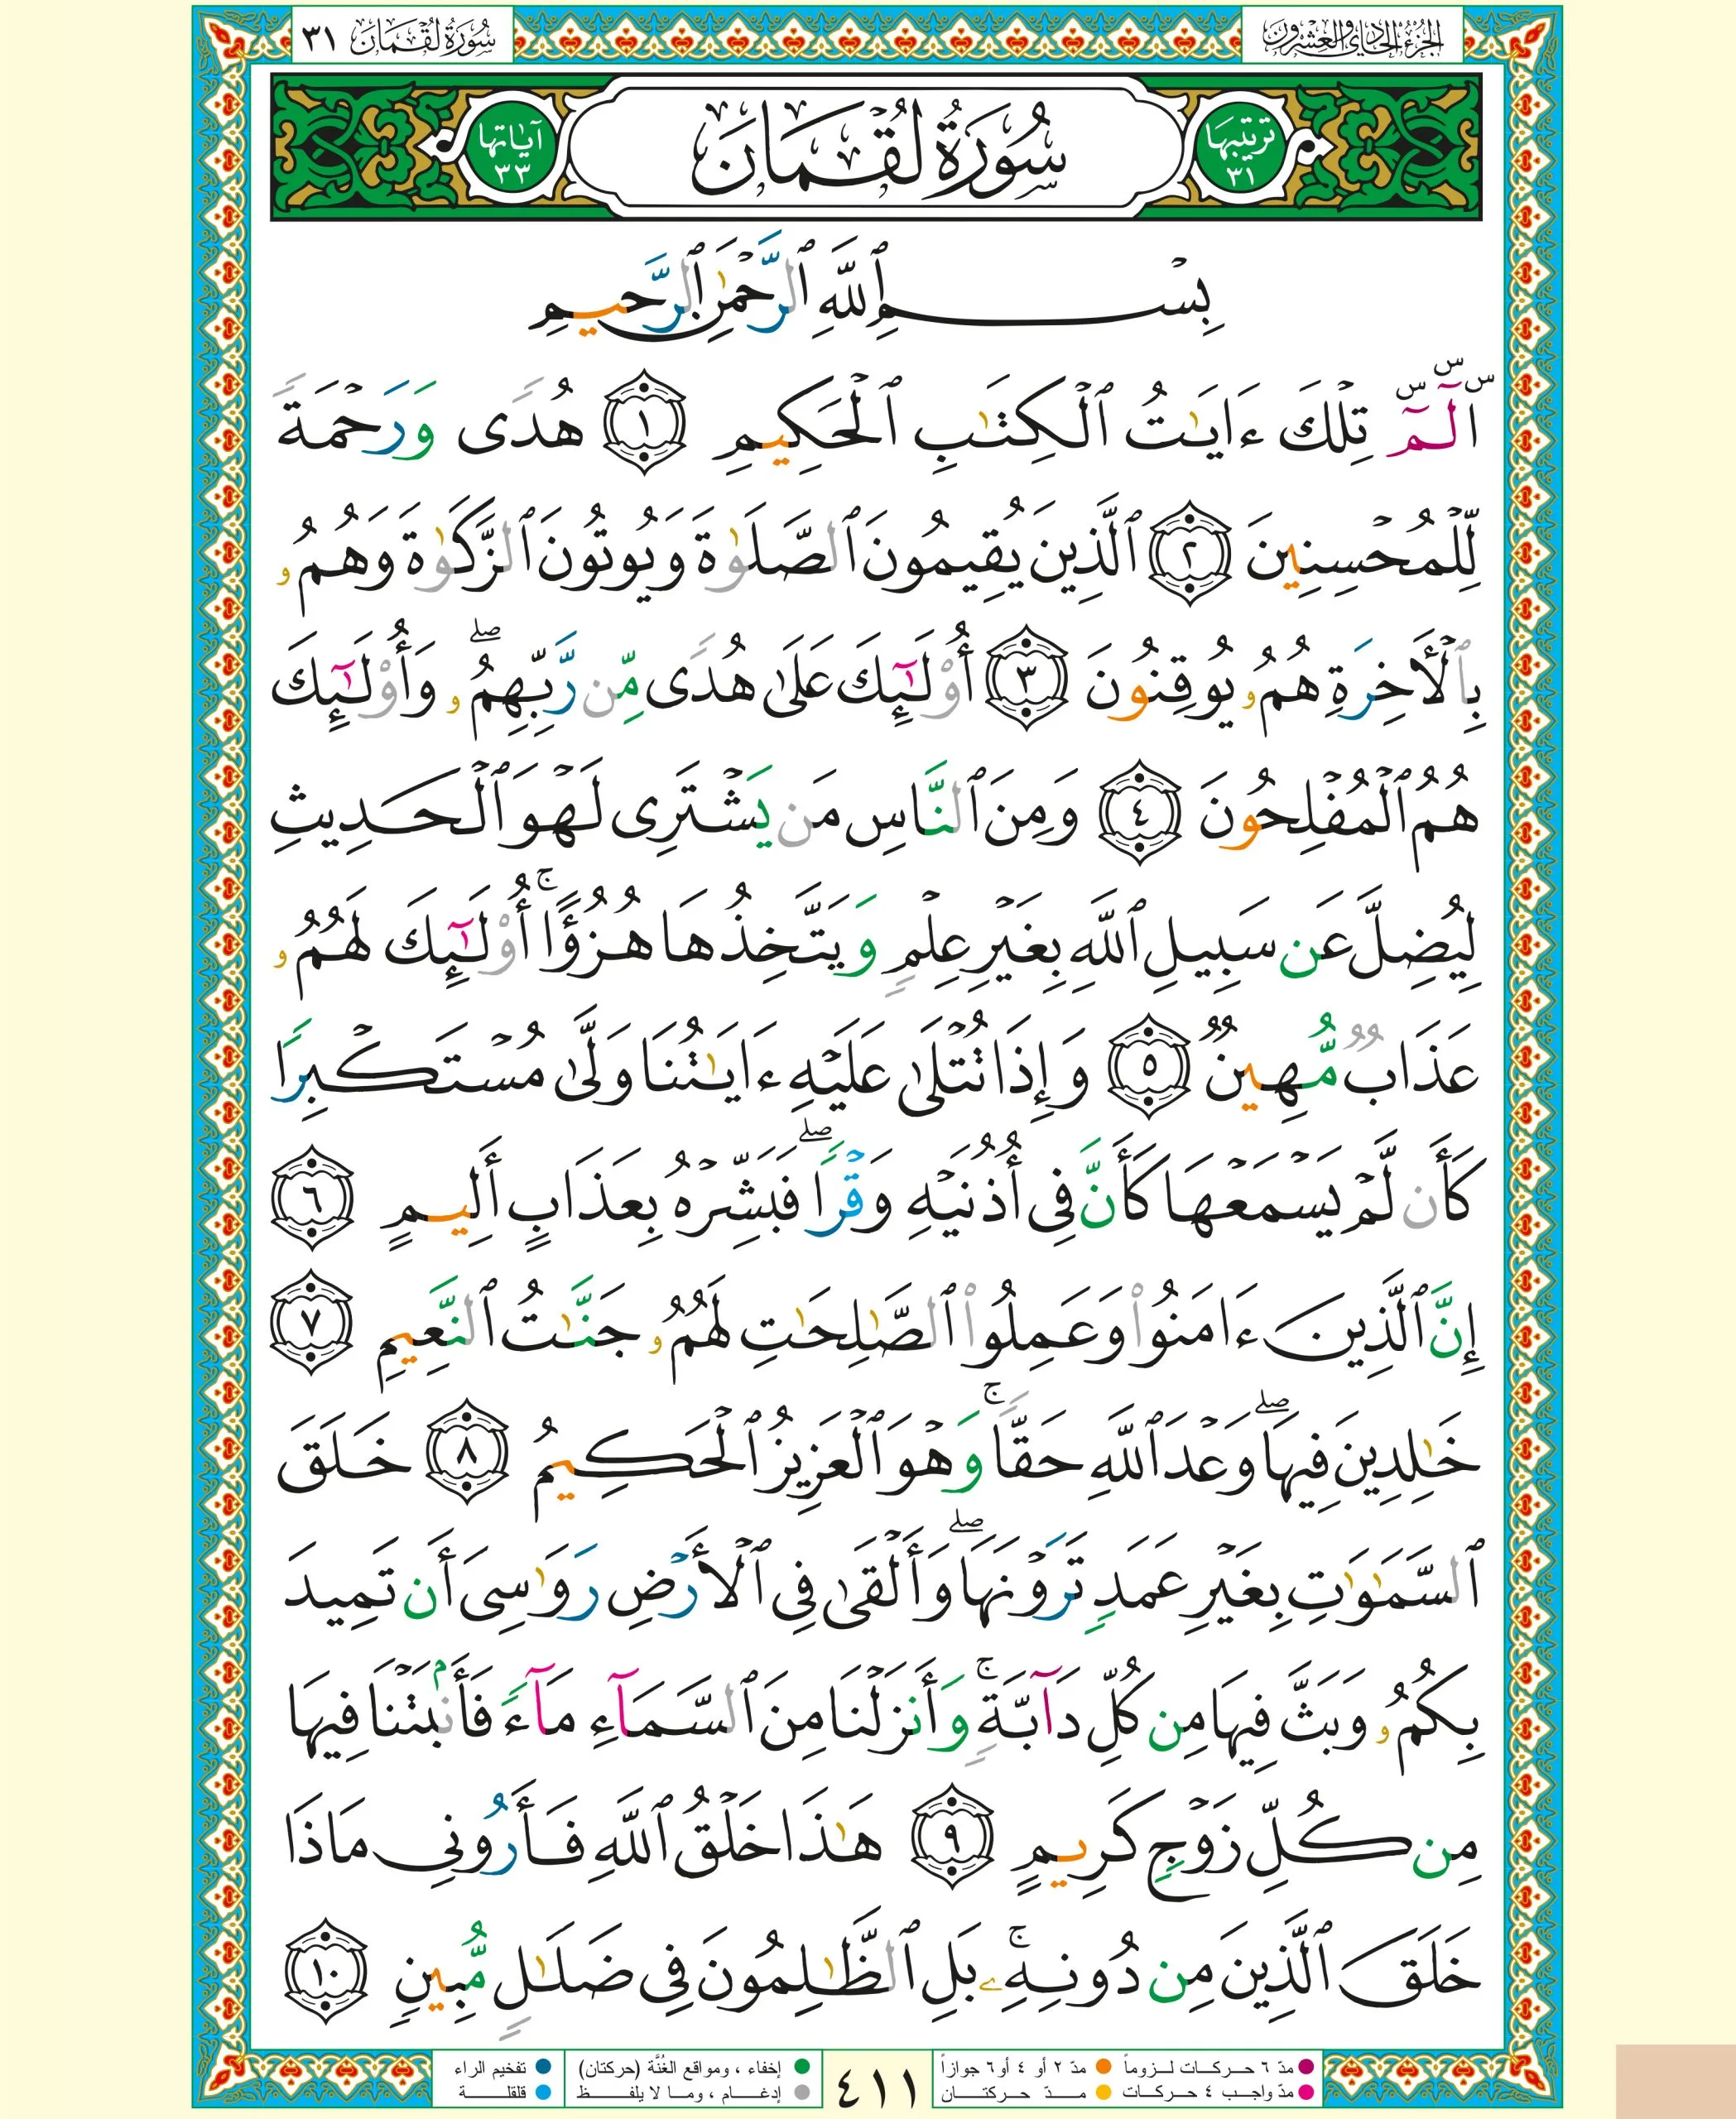 الجزء الحادي والعشرون
سُورَةُ لُقْمَانَ ٣١
ترتيبها ٣١
سُورَةُ لُقْمَانَ
آياتها ٣٣
بِسْمِ ٱللَّهِ ٱلرَّحْمَٰنِ ٱلرَّحِيمِ
الٓمٓ تِلْكَ ءَايَٰتُ ٱلْكِتَٰبِ ٱلْحَكِيمِ ١ هُدًى وَرَحْمَةً
لِّلْمُحْسِنِينَ ٢ ٱلَّذِينَ يُقِيمُونَ ٱلصَّلَوٰةَ وَيُوتُونَ ٱلزَّكَوٰةَ وَهُمُۥ
بِٱلْأَخِرَةِ هُمُۥ يُوقِنُونَ ٣ أُوْلَٰٓئِكَ عَلَىٰ هُدًى مِّن رَّبِّهِمُۥۖ وَأُوْلَٰٓئِكَ
هُمُ ٱلْمُفْلِحُونَ ٤ وَمِنَ ٱلنَّاسِ مَن يَشْتَرِى لَهْوَ ٱلْحَدِيثِ
لِيُضِلَّ عَن سَبِيلِ ٱللَّهِ بِغَيْرِ عِلْمٍ وَيَتَّخِذُهَا هُزُؤًاۚ أُوْلَٰٓئِكَ لَهُمُۥ
عَذَابٌ مُّهِينٌ ٥ وَإِذَا تُتْلَىٰ عَلَيْهِ ءَايَٰتُنَا وَلَّىٰ مُسْتَكْبِرًا
كَأَن لَّمْ يَسْمَعْهَا كَأَنَّ فِى أُذُنَيْهِ وَقْرًاۖ فَبَشِّرْهُ بِعَذَابٍ أَلِيمٍ ٦
إِنَّ ٱلَّذِينَ ءَامَنُوا۟ وَعَمِلُوا۟ ٱلصَّٰلِحَٰتِ لَهُمُۥ جَنَّٰتُ ٱلنَّعِيمِ ٧
خَٰلِدِينَ فِيهَاۖ وَعْدَ ٱللَّهِ حَقًّاۚ وَهْوَ ٱلْعَزِيزُ ٱلْحَكِيمُ ٨ خَلَقَ
ٱلسَّمَٰوَٰتِ بِغَيْرِ عَمَدٍ تَرَوْنَهَاۖ وَأَلْقَىٰ فِى ٱلْأَرْضِ رَوَٰسِىَ أَن تَمِيدَ
بِكُمُۥ وَبَثَّ فِيهَا مِن كُلِّ دَآبَّةٍۚ وَأَنزَلْنَا مِنَ ٱلسَّمَآءِ مَآءً فَأَنۢبَتْنَا فِيهَا
مِن كُلِّ زَوْجٍ كَرِيمٍ ٩ هَٰذَا خَلْقُ ٱللَّهِ فَأَرُونِى مَاذَا
خَلَقَ ٱلَّذِينَ مِن دُونِهِۦۚ بَلِ ٱلظَّٰلِمُونَ فِى ضَلَٰلٍ مُّبِينٍ ١٠
مدّ ٦ حركات لزوماً مدّ ٢ أو ٤ أو ٦ جوازاً
مدّ واجب ٤ حركات مدّ حركتان
٤١١
إخفاء ، ومواقع الغُنَّة (حركتان) تفخيم الراء
إدغام ، وما لا يلفظ قلقلة